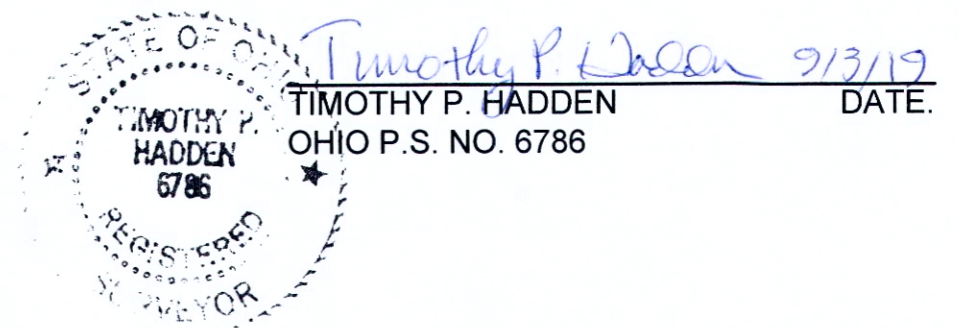 STATE OF OHIO
TIMOTHY P.
HADDEN
6786
REGISTERED
SURVEYOR
Timothy P. Hadden 9/3/19
TIMOTHY P. HADDEN DATE.
OHIO P.S. NO. 6786